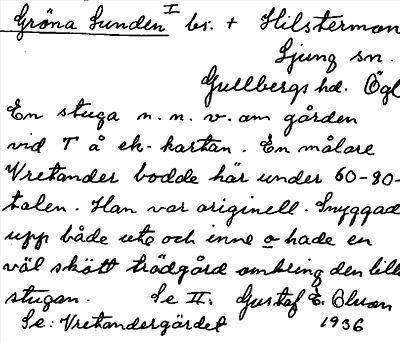 Gröna Lunden I bs. + Hilsterman
Ljung sn.
Gullbergs hd. Ögl
En stuga n. n. v. om gården
vid T å ek-kartan. En målare
Vretander bodde här under 60-80-
talen. Han var originell. Snyggad
upp både ute och inne o hade en
väl skött trädgård omkring den lilla
stugan. Se II: Gustaf E. Olsson
Se: Vretandergärdet 1936